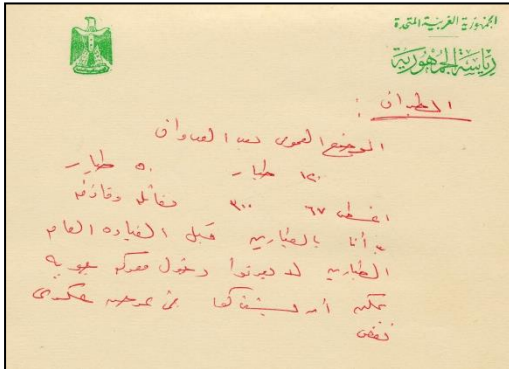 الجمهورية العربية المتحدة
رياسة الجمهورية
الطيران :
الموقف الجوى بعد العدوان
١٢٠ طيار ٥٠ طيار
اغسطس ٦٧ ٣٠٠ مقاتله وقاذفه
أنا بالطيارين قبل القيادة العام
الطيارين لا يعرفوا دخول معركه جويه
يمكن أن عسكرى
نقص